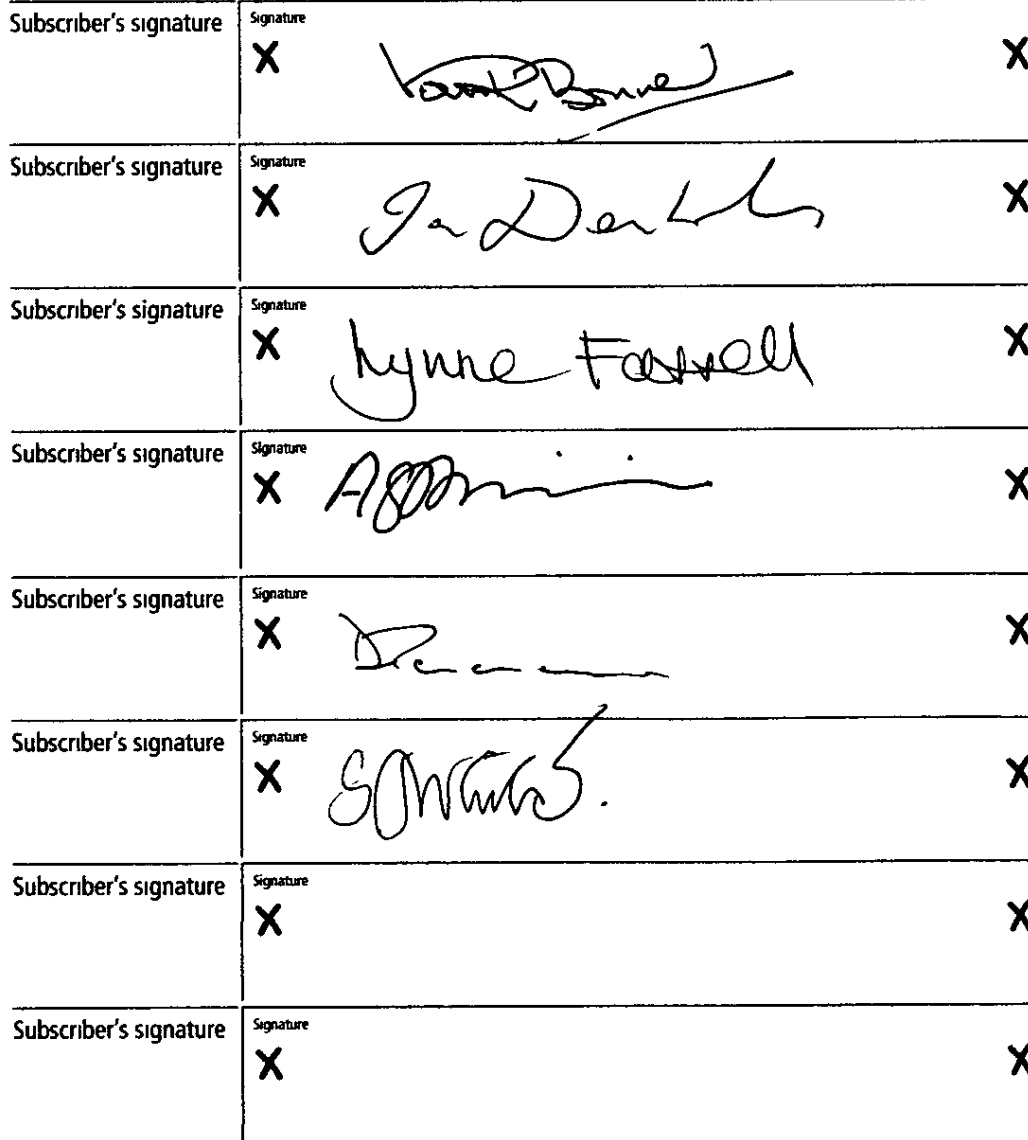 Subscriber's signature
Signature
X X
Subscriber's signature
Signature
X X
Subscriber's signature
Signature
X Lynne Farrell X
Subscriber's signature
Signature
X X
Subscriber's signature
Signature
X X
Subscriber's signature
Signature
X X
Subscriber's signature
Signature
X X
Subscriber's signature
Signature
X X